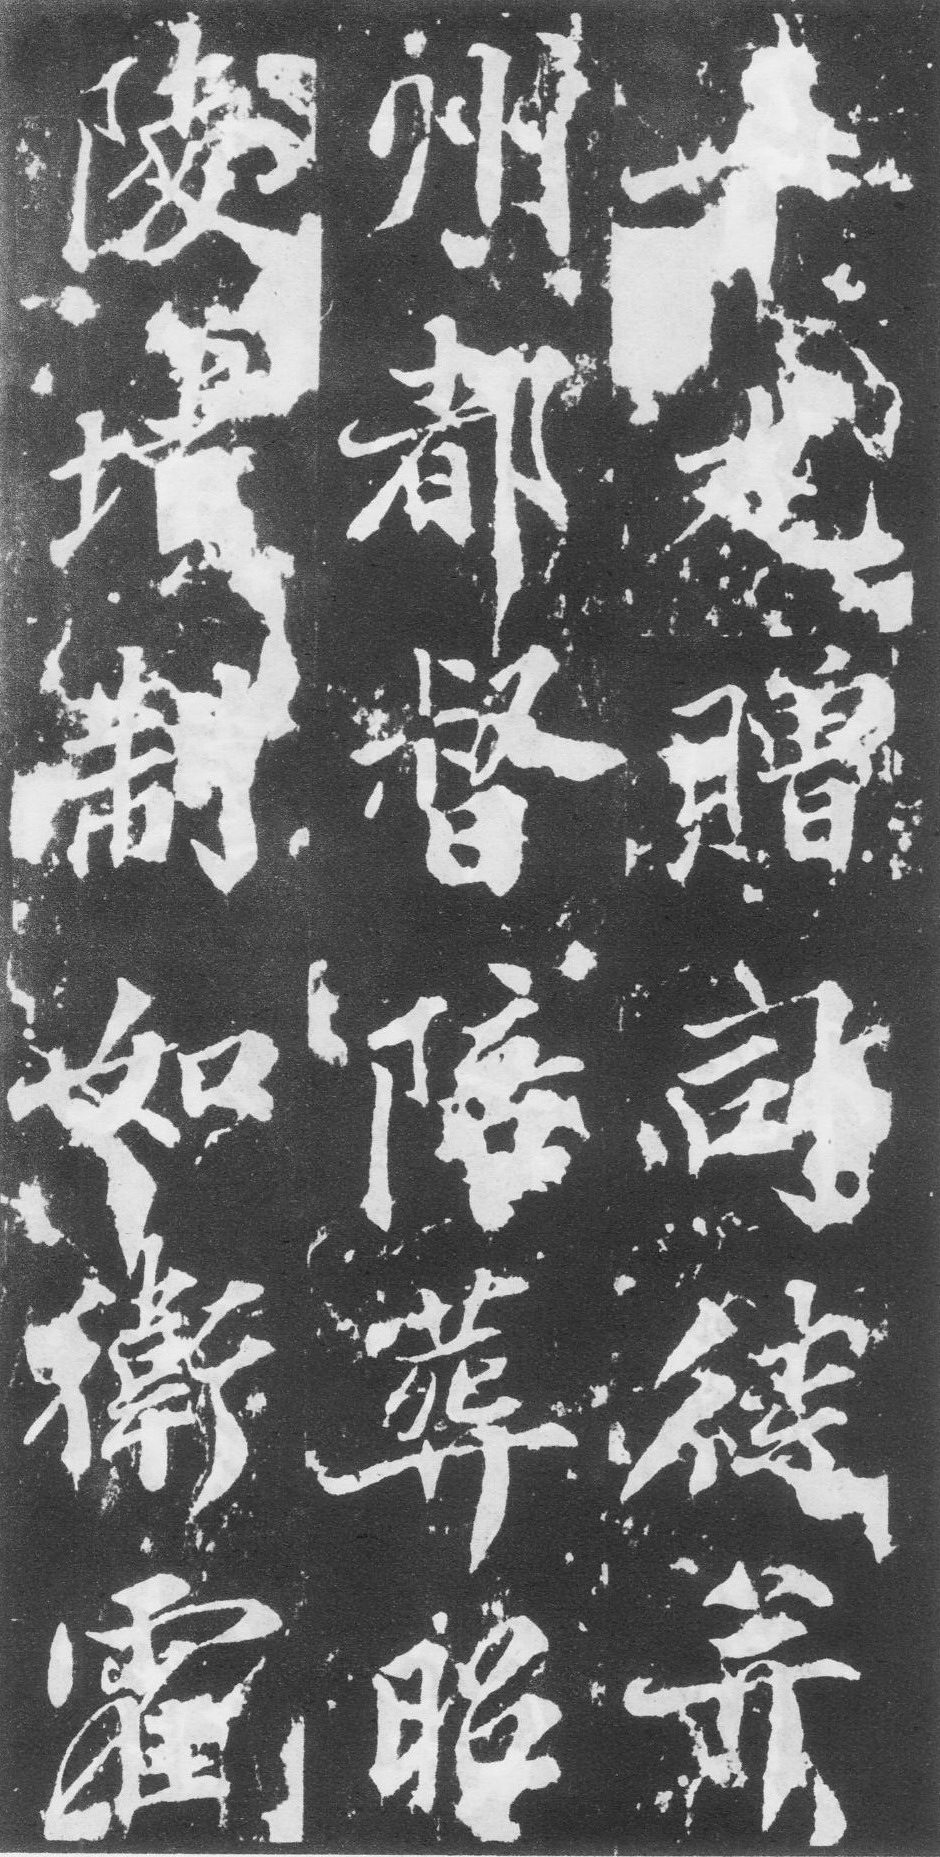 贈司徒并
州都督陪葬昭
陵墳制如衛霍